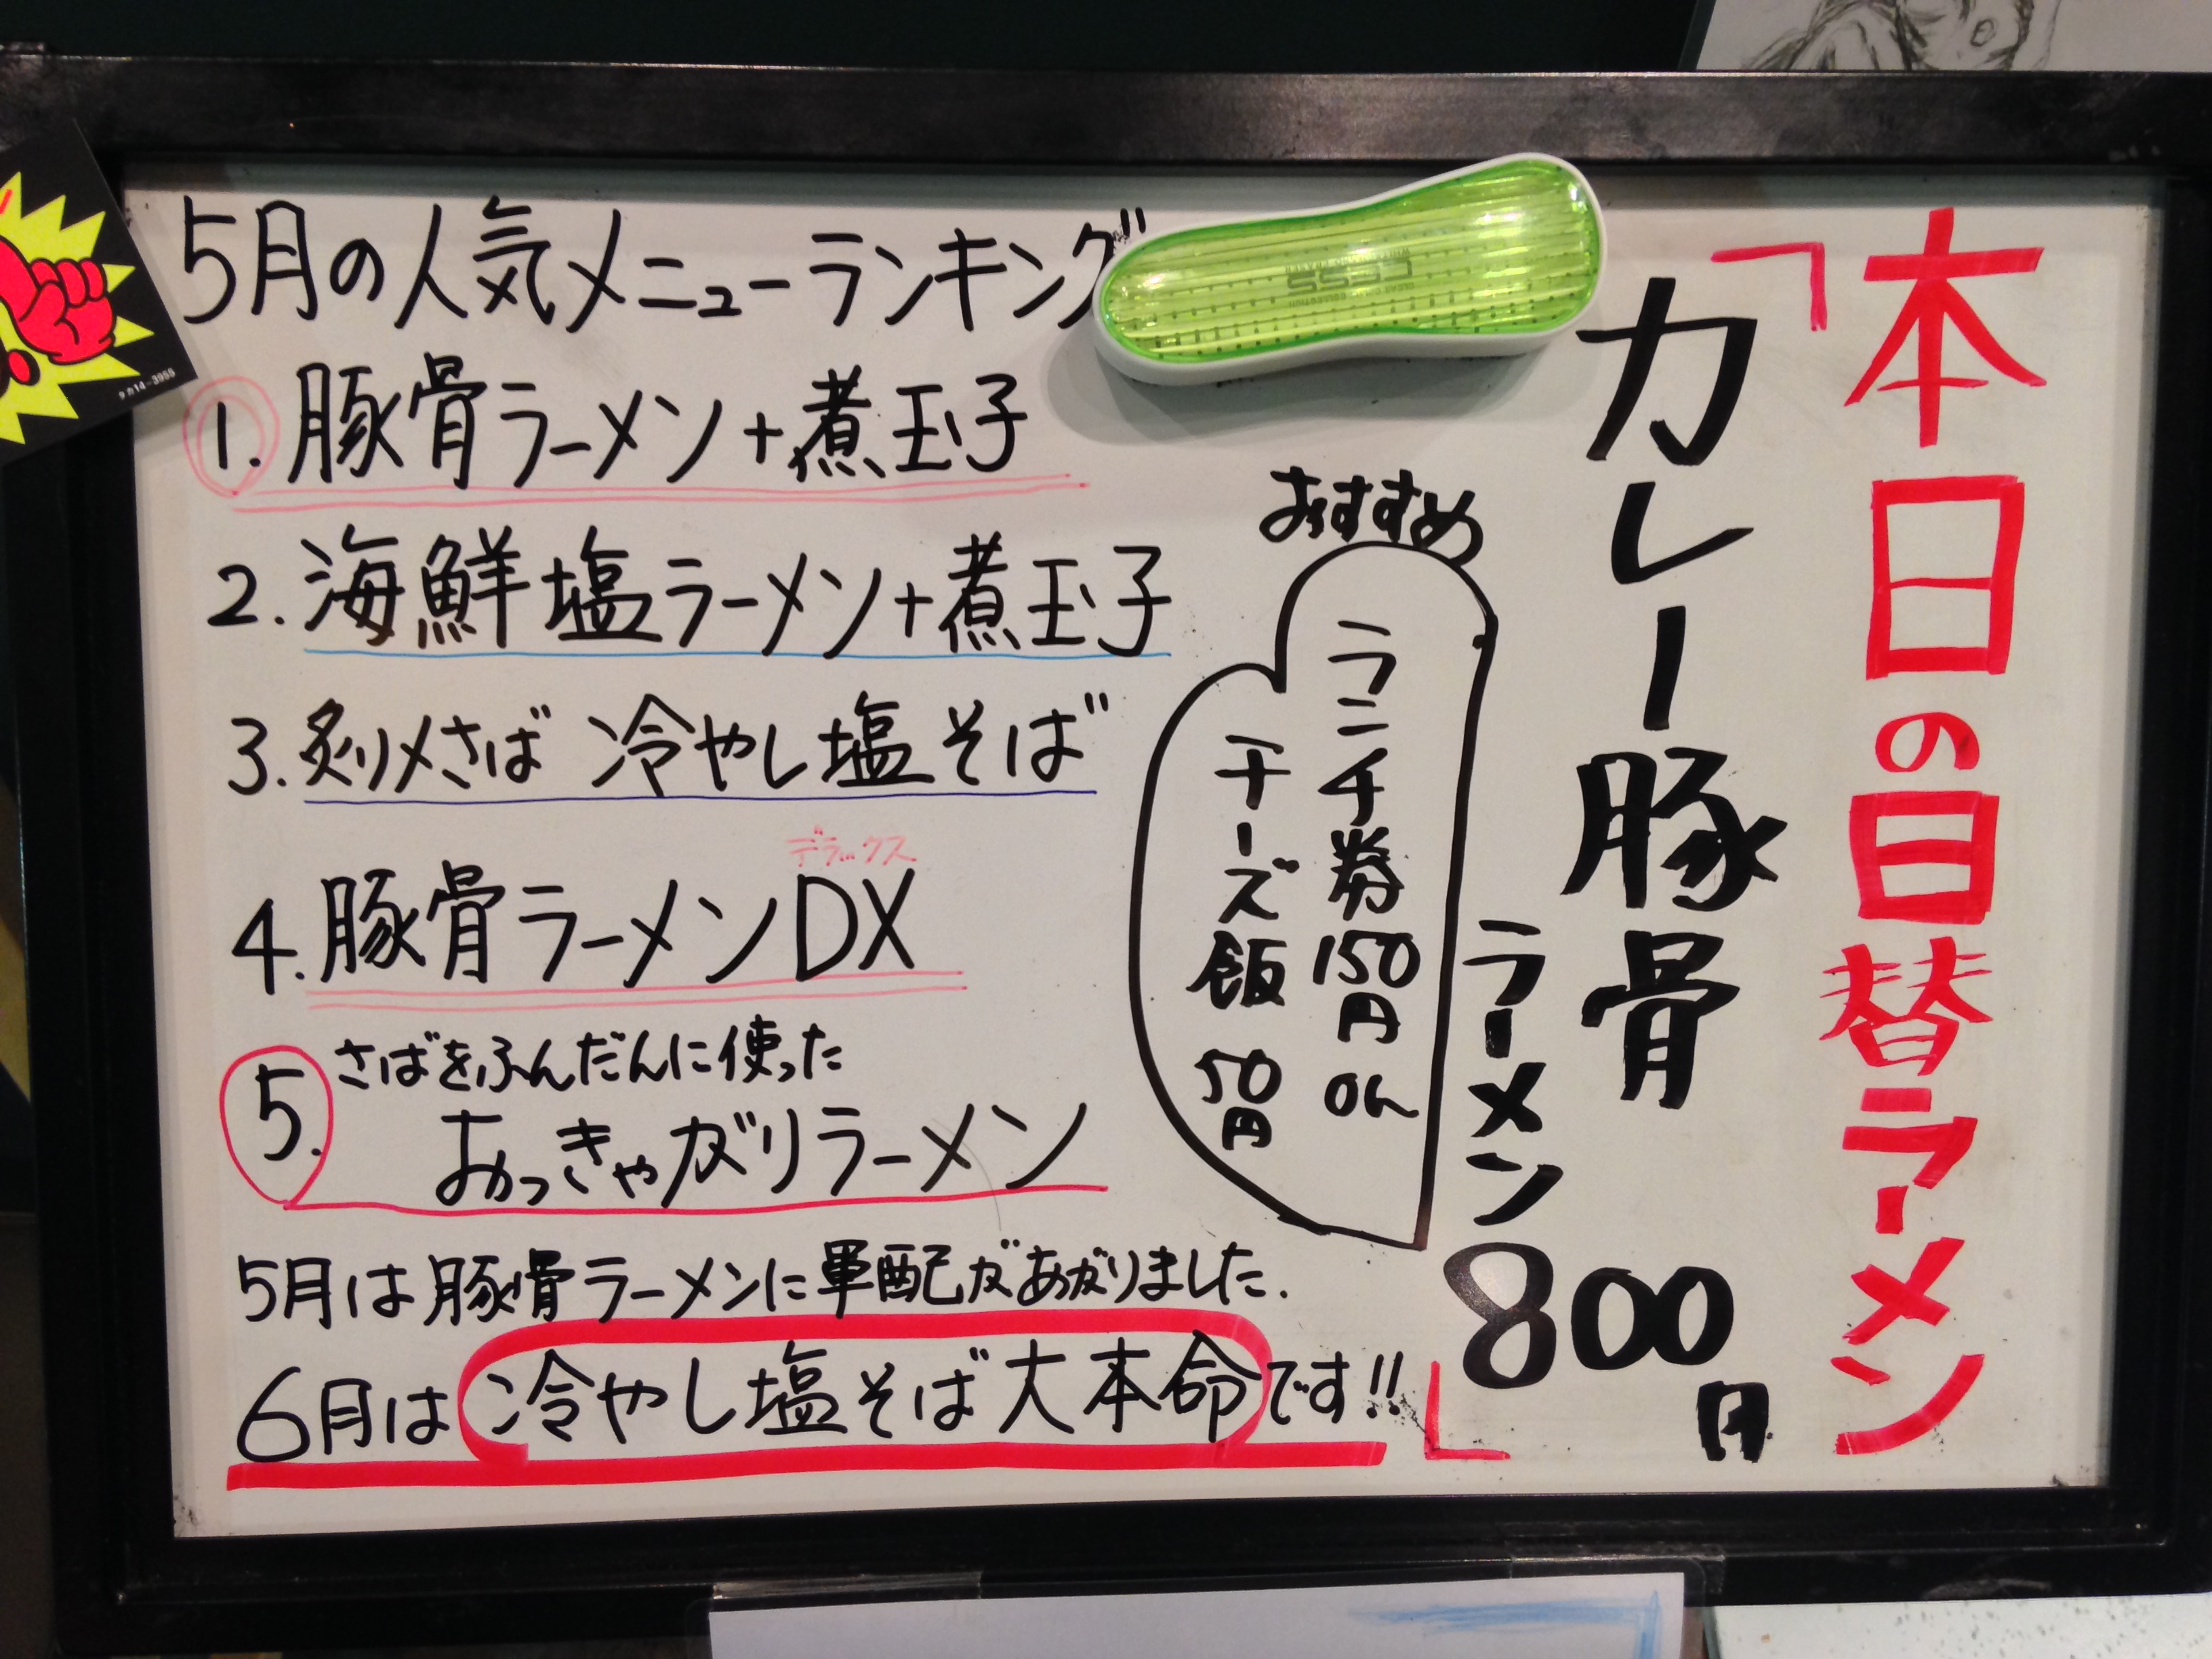 本日の日替ラーメン
「カレー豚骨
ラーメン
800円」
おすすめ
ランチ券150円OK
チーズ飯 50円
5月の人気メニューランキング
1. 豚骨ラーメン+煮玉子
2. 海鮮塩ラーメン+煮玉子
3. 炙り〆さば 冷やし塩そば
デラックス
4. 豚骨ラーメンDX
さばをふんだんに使った
5. おっきゃがりラーメン
5月は豚骨ラーメンに軍配があがりました.
6月は冷やし塩そば大本命です!!
タカ14-3955